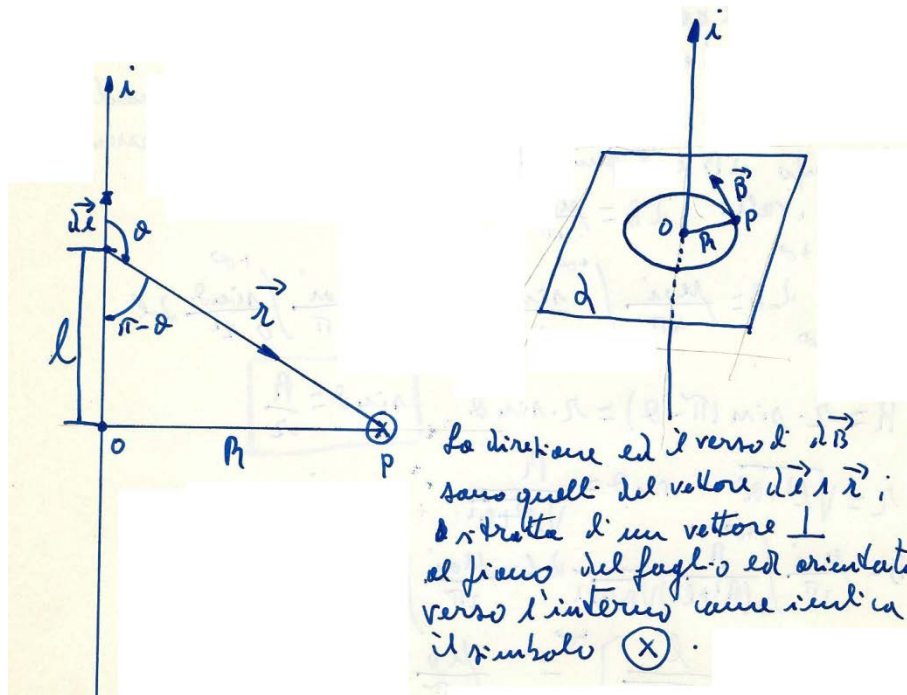 i
i
dl
θ
r
π-θ
l
O
R
P
B
O
R
P
α
La direzione ed il verso di dB
sono quelli del vettore dl ∧ r ;
si tratta di un vettore ⊥
al piano del foglio ed orientato
verso l'interno come indica
il simbolo ⊗ .